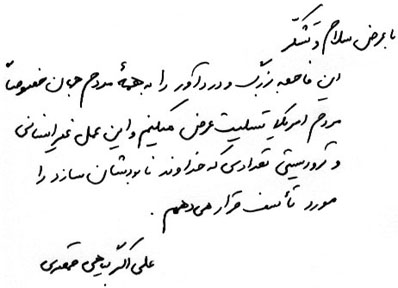 با عرض سلام و تشکر
این فاجعه بزرگ و دردآور را به همهٔ مردم جهان خصوصاً
مردم امریکا تسلیت عرض میکنیم و این عمل غیر انسانی
و تروریستی تعدادی که خداوند نابودشان سازد را
مورد تأسف قرار می‌دهم .
علی اکبر